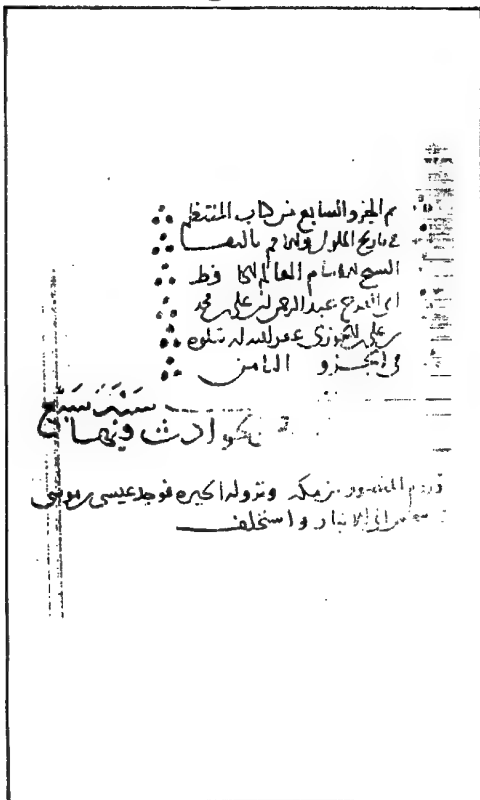 تم الجزء السابع من كتاب المنتظم
في تاريخ الملوك والامم تاليف
الشيخ الامام العالم الحافظ
ابي الفرج عبد الرحمن بن علي بن محمد
بن علي الجوزي غفر الله له يتلوه
في الجزو الثامن
سنة سبع
الحوادث فيها
قدوم المنصور من مكة ونزوله الحيره فوجد عيسى بن موسى
الى الانبار واستخلف